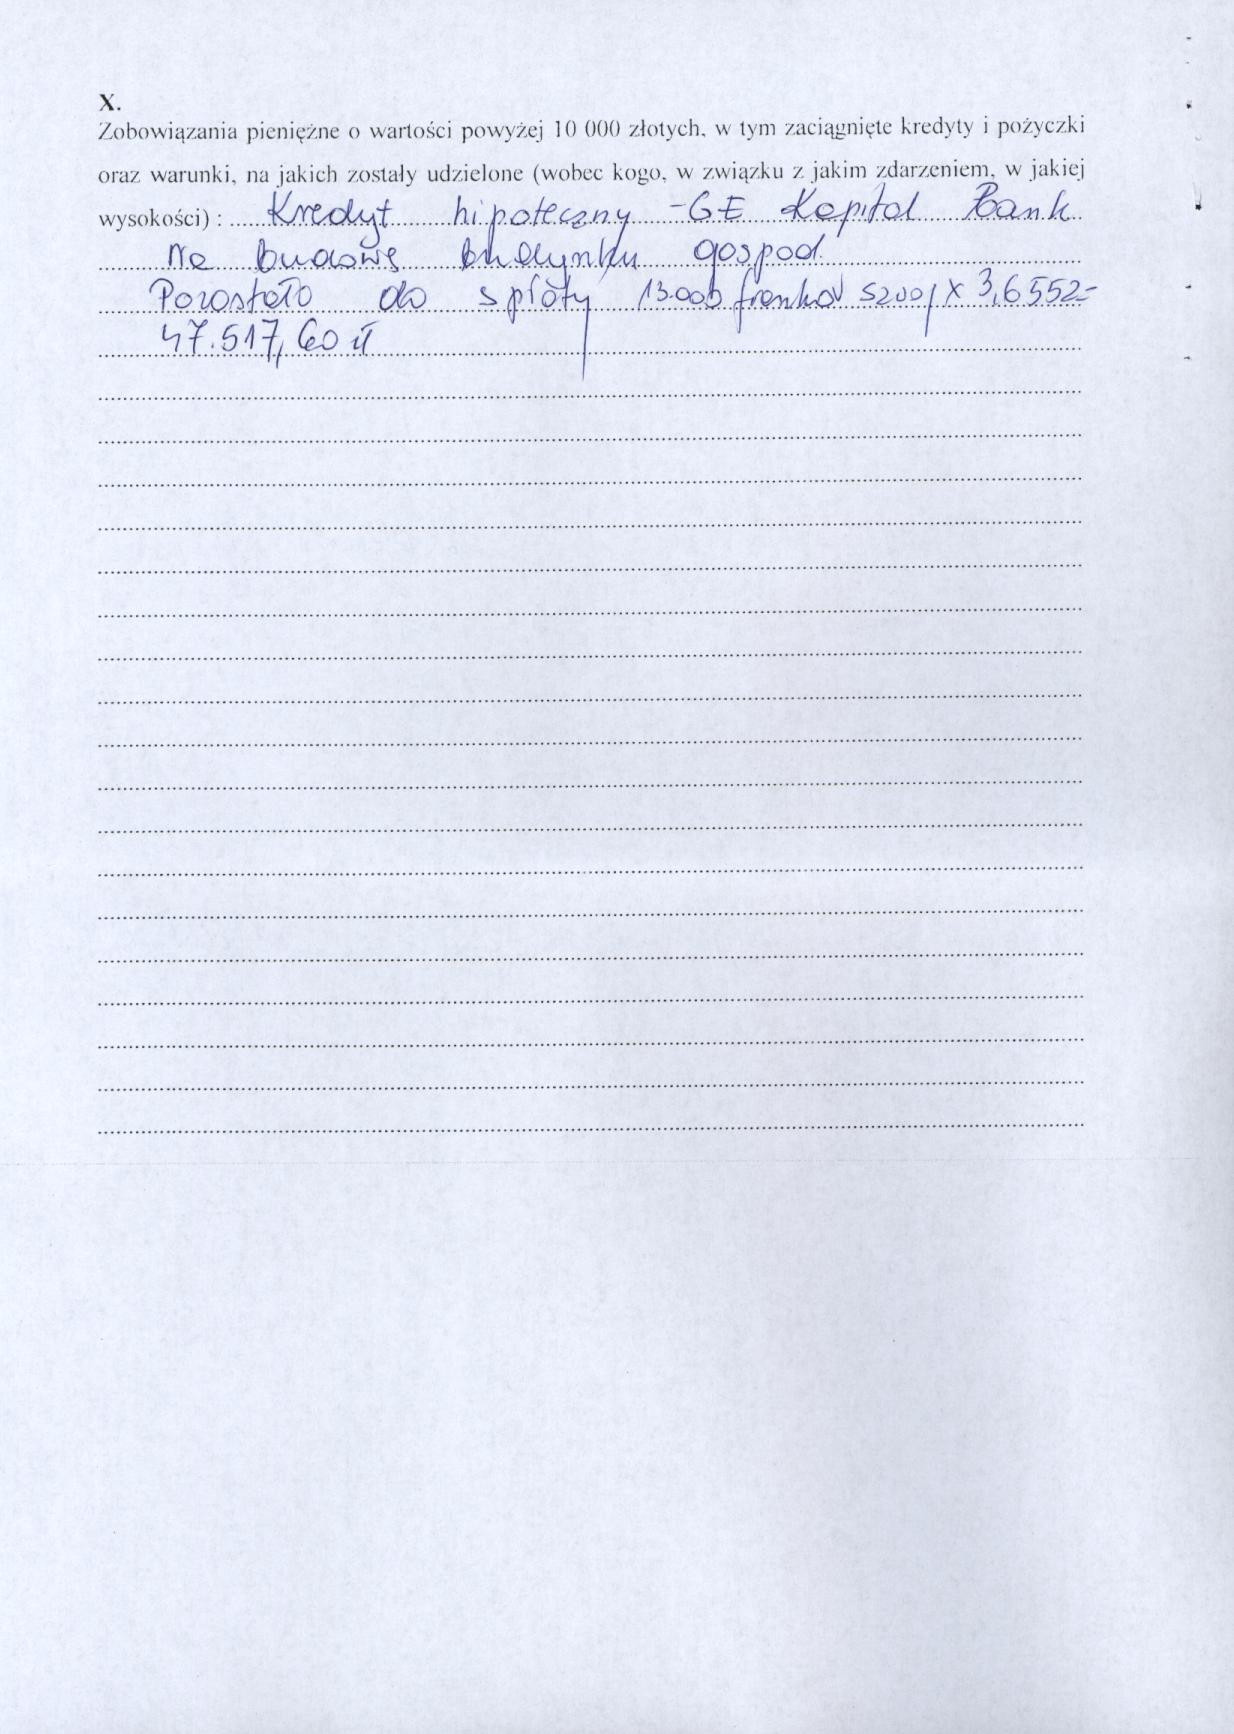 X.
Zobowiązania pieniężne o wartości powyżej 10 000 złotych, w tym zaciągnięte kredyty i pożyczki
oraz warunki, na jakich zostały udzielone (wobec kogo, w związku z jakim zdarzeniem, w jakiej
wysokości) : Kredyt hipoteczny - GE Kapital Bank
Na budowę budynku gospod.
Pozostało do spłaty 13.000 franków szwaj x 3,6552=
47.517,60 zł